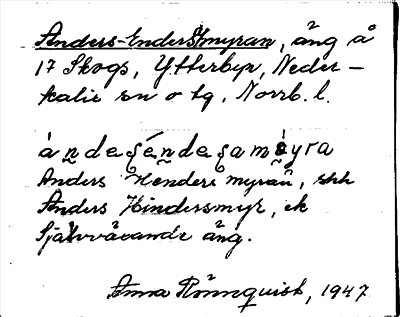 Anders-Endersmyran, äng å
17 Skogs, Ytterbyn, Neder-
kalix sn o tg, Norrb. l.
Anders Henders myran, shh
Anders Hindersmyr, ek
Självvåvande äng.
Anna Rönnquist, 1947